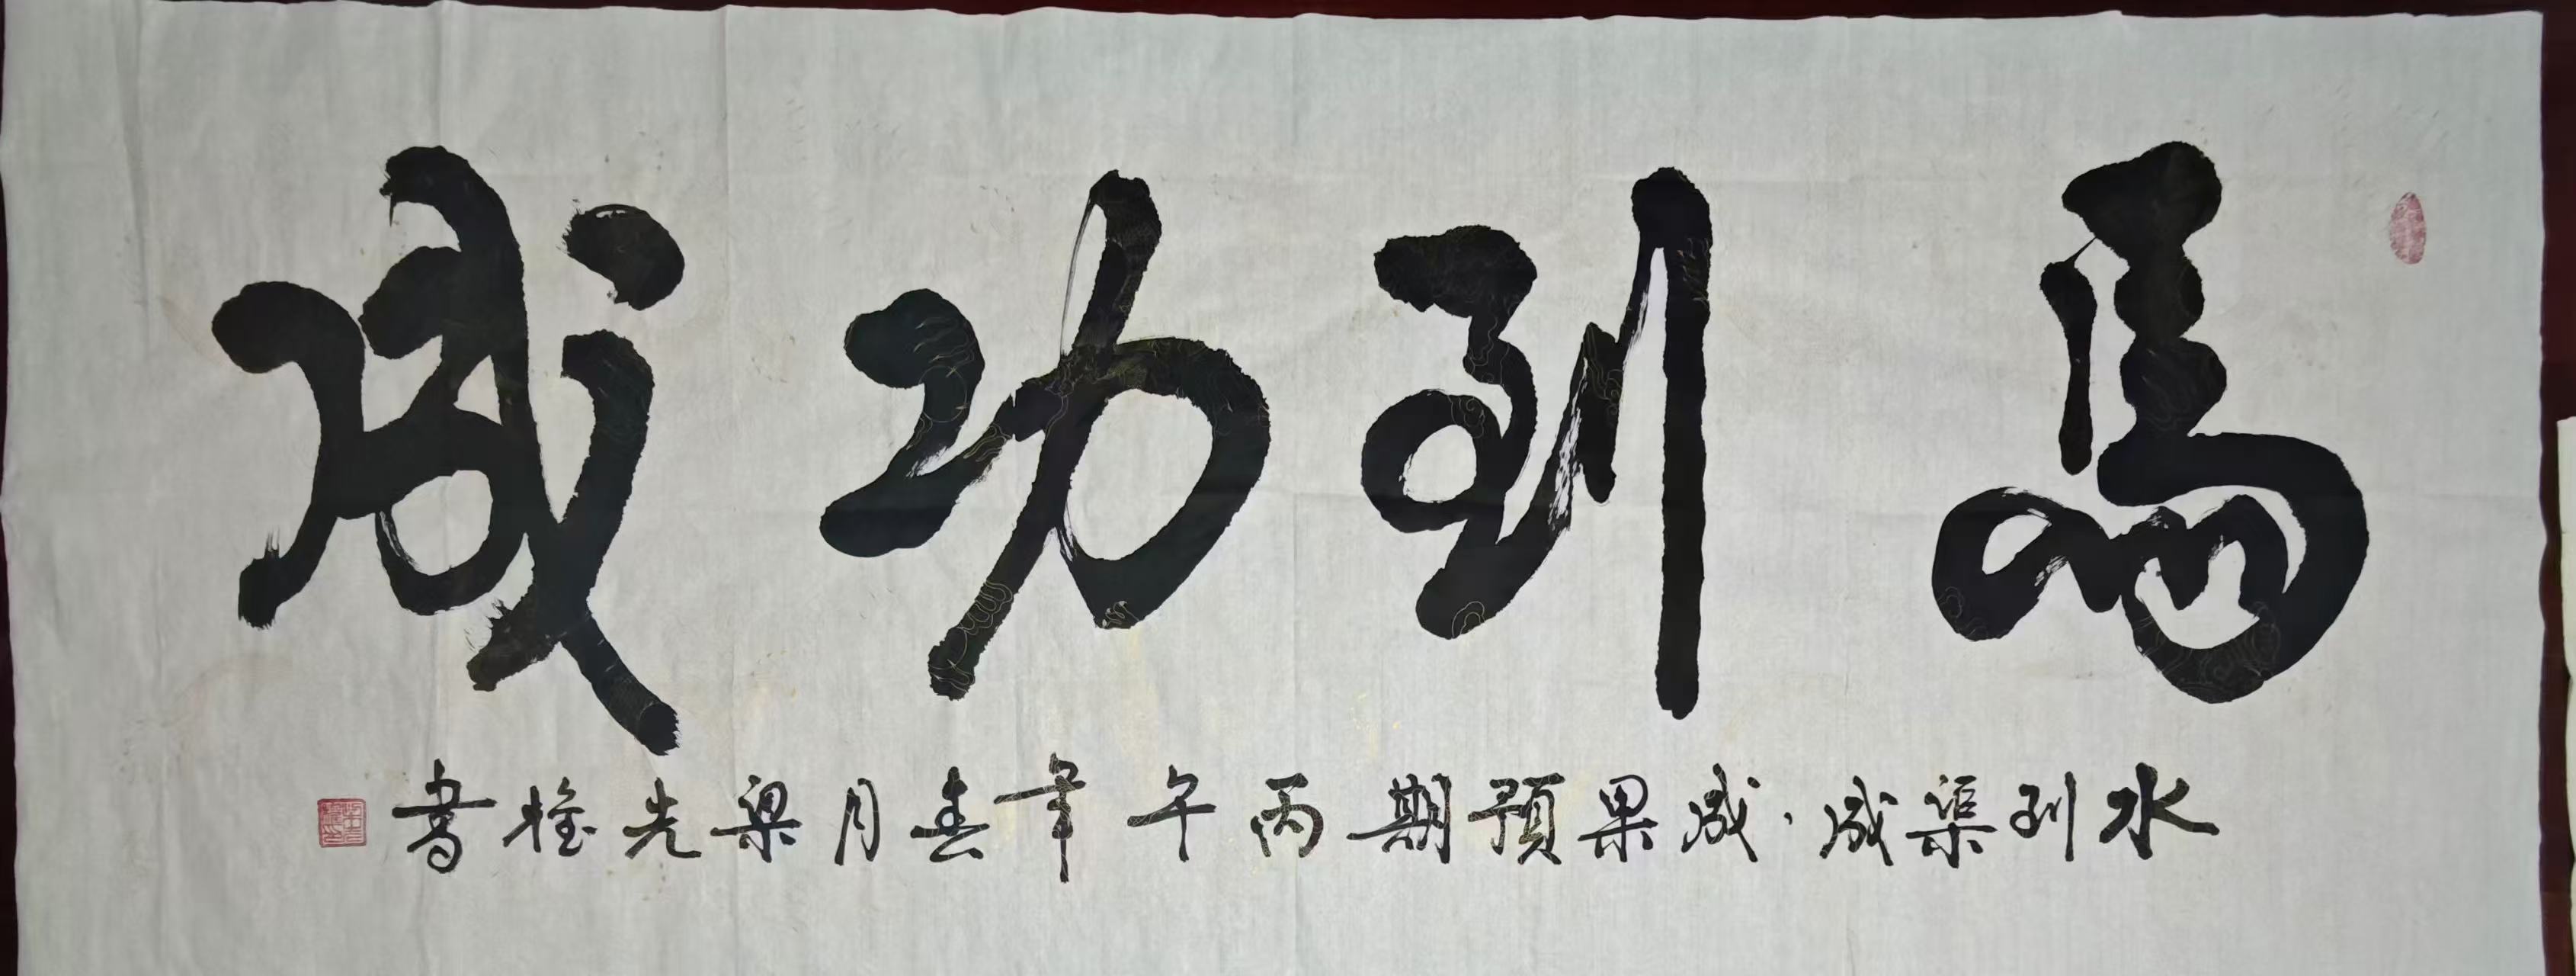 馬到功成
水到渠成·成果預期丙午年春月梁光権書